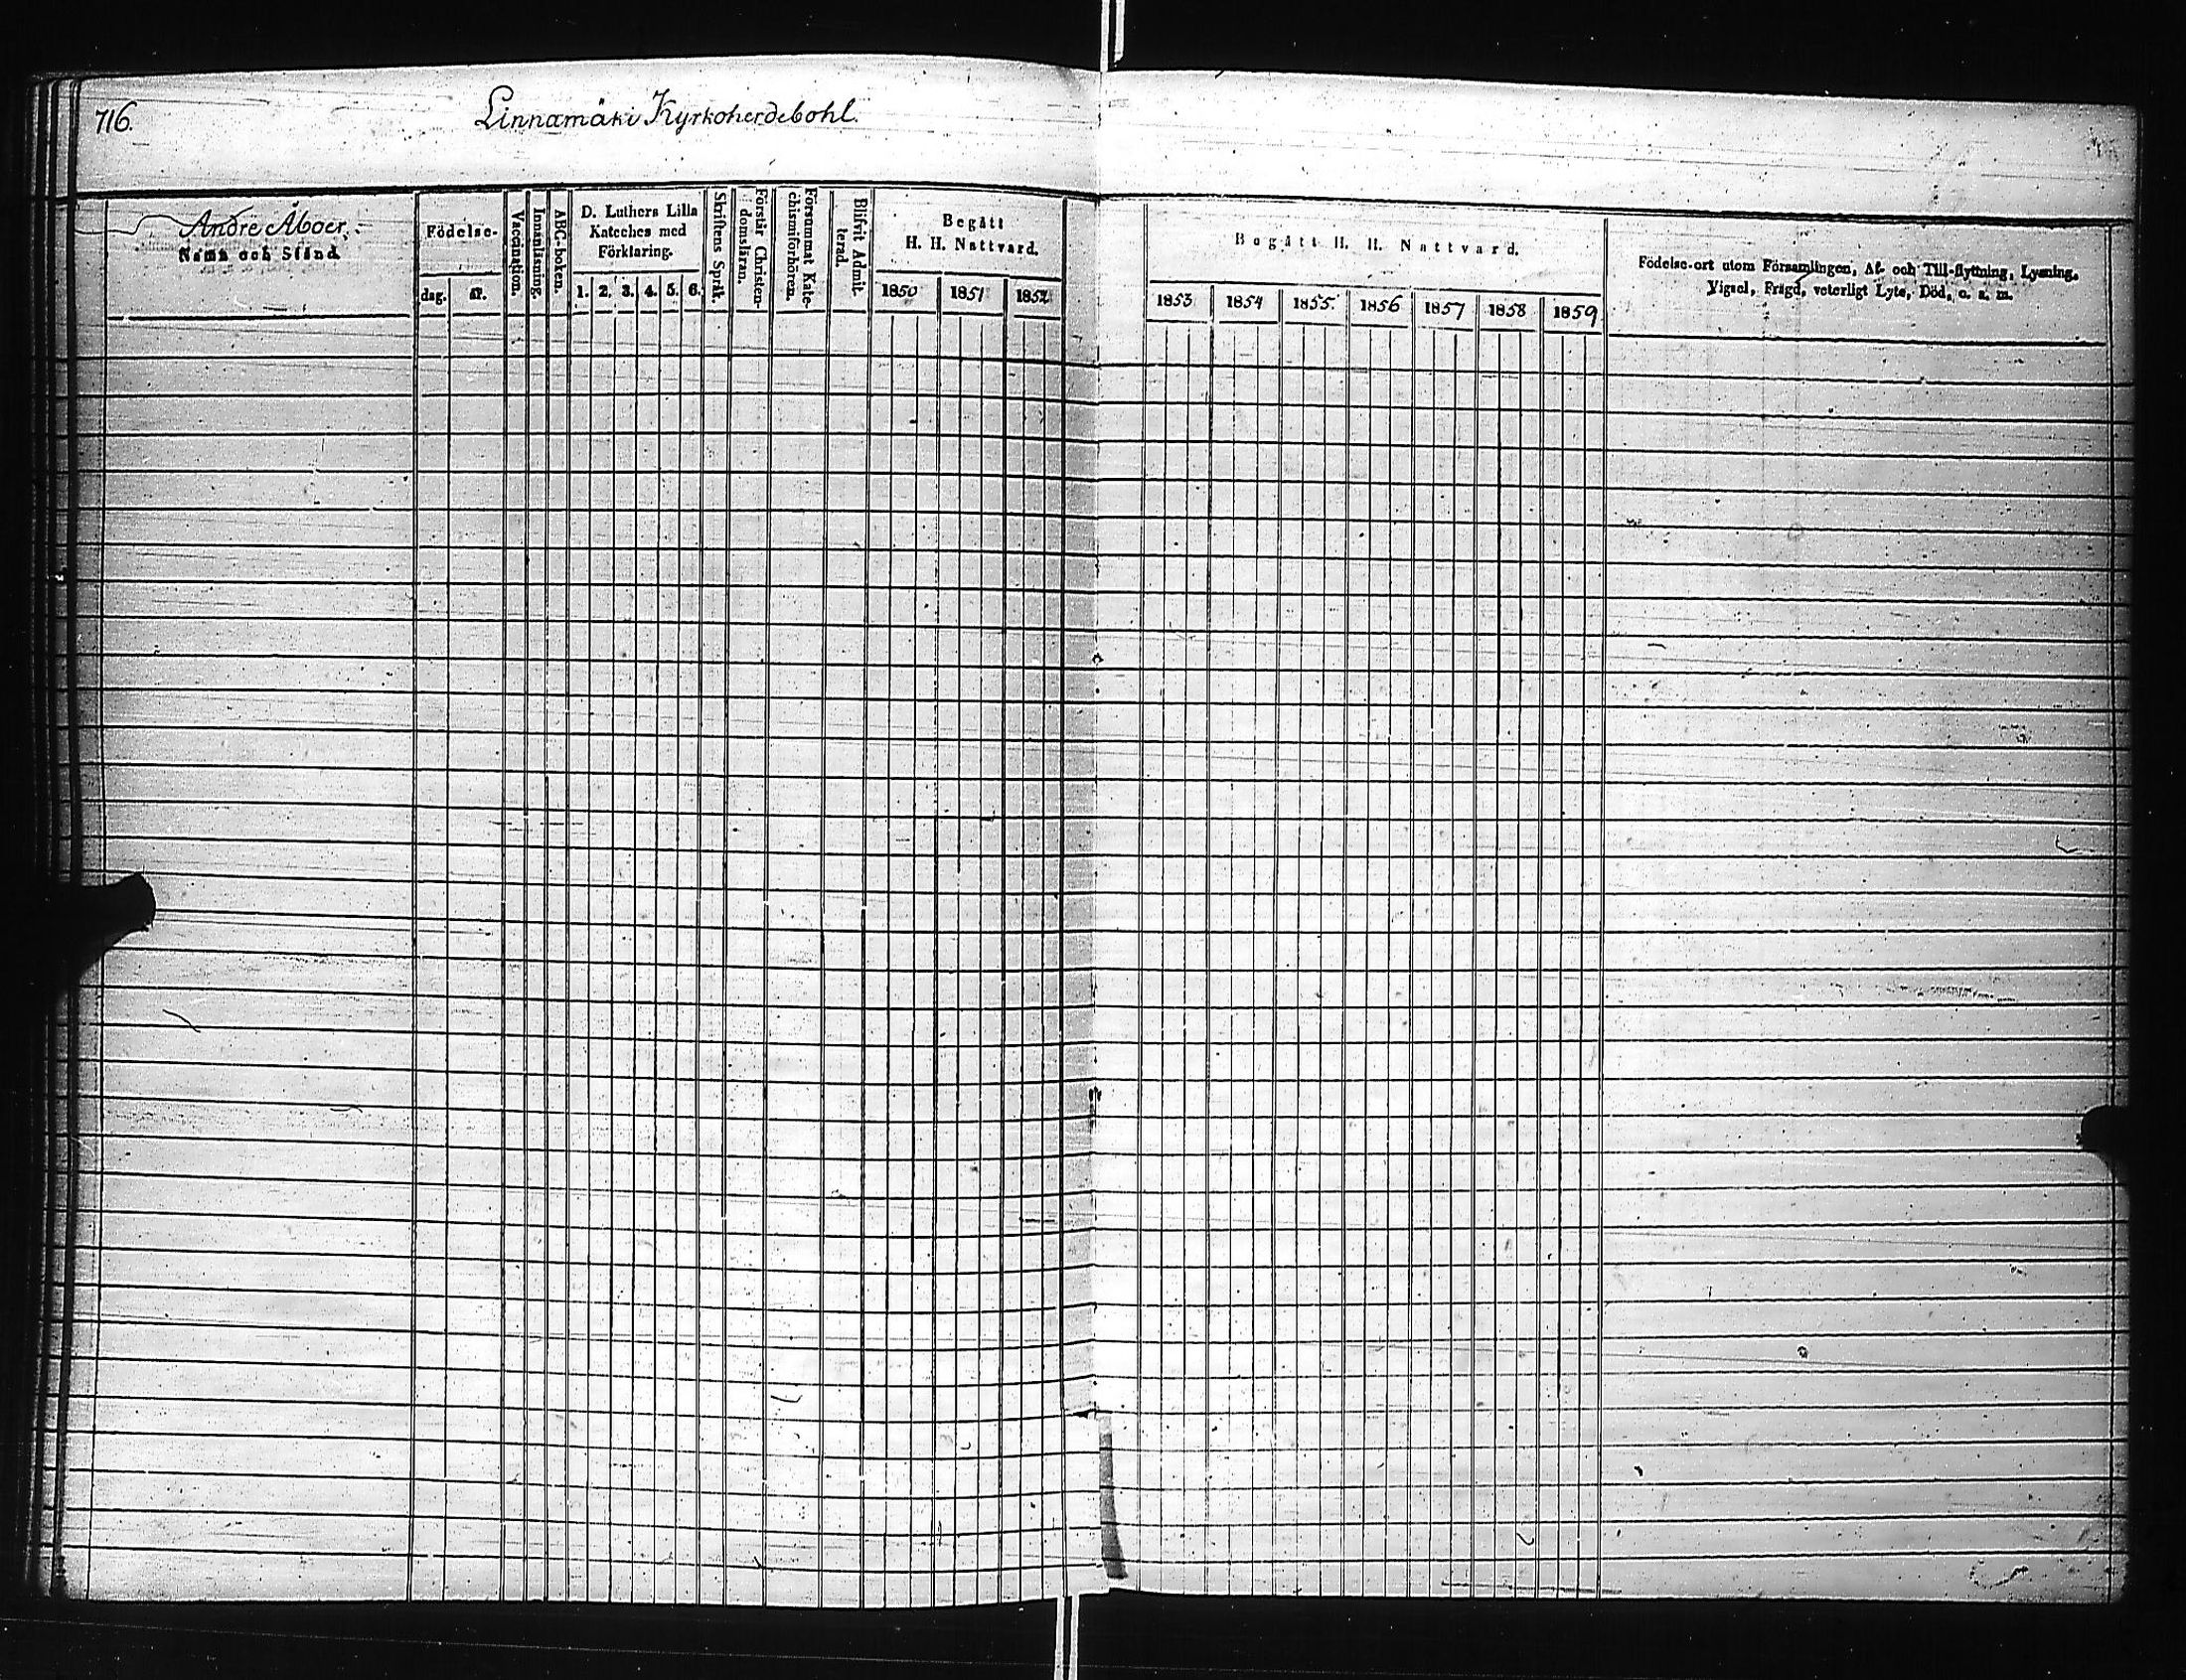 716.
Linnamäki Kyrkoherdebohl.
Andre Åboer,
Namn och Stånd
Födelse-
dag.
år.
Vaccination.
Innanläsning.
ABC-boken.
D. Luthers Lilla
Kateches med
Förklaring.
1. 2. 3. 4. 5. 6.
Skriftens Språk.
Förstår Christen-
domsläran.
Försummat Kate-
chismiförhören.
Blifvit Admit-
terad.
Begått
H. H. Nattvard.
1850 1851 1852
Begått H. H. Nattvard.
1853 1854 1855 1856 1857 1858 1859
Födelse-ort utom Församlingen, Af- och Till-flyttning, Lysning,
Vigsel, Frägd, veterligt Lyte, Död, o. s. m.